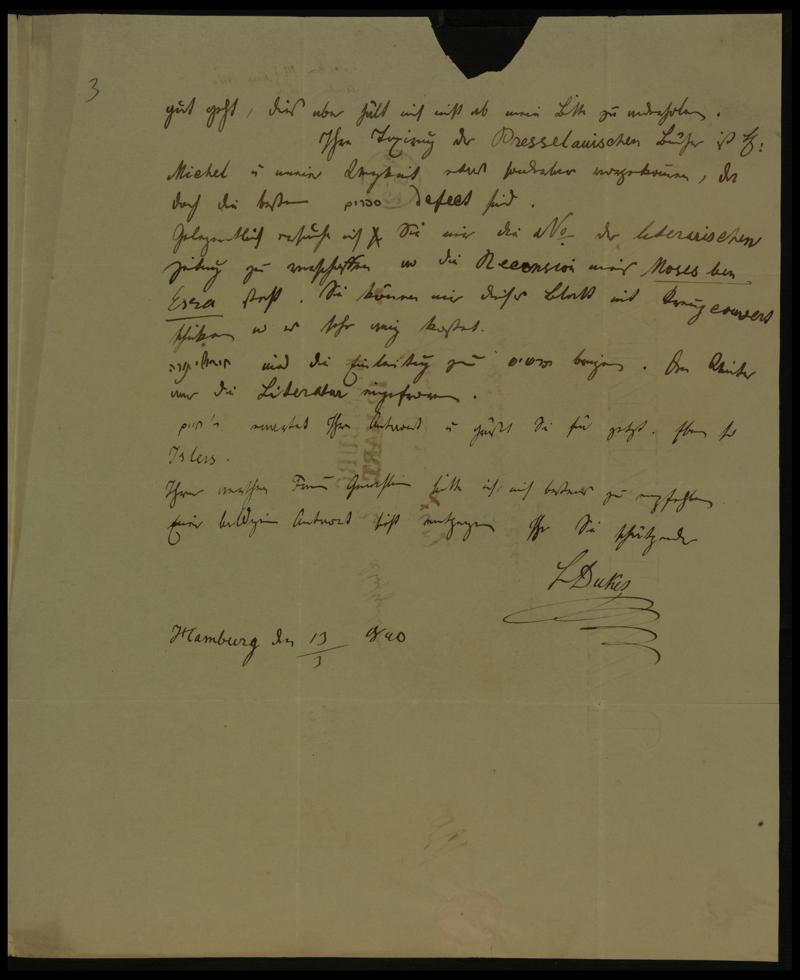 3
gut geht, dies aber hält mich nicht ab meine Bitte zu wiederholen.
Ihre Taxirung der Presselauischen Bücher ist H:
Michel u meiner Wenigkeit etwas sonderbar vorgekommen, da
doch die besten ספרים Defect sind.
Gelegentlich ersuche ich Sie mir die No der literarischen
Zeitung zu verschaffen wo die Recension meines Moses ben
Esra steht. Sie können mir dieses Blatt mit Kreuzcouvert
schicken wo es sehr wenig kostet.
und die Einleitung zu. Den Winter
war die Literatur eingefroren.
erwartet Ihre Antwort u grüßt Sie für jetzt. Eben so
Islers.
Ihrer werthen Frau Gemahlin bitte ich mich bestens zu empfehlen.
Einer baldigen Antwort sieht entgegen Ihr Sie schätzender
L Dukes
Hamburg den 13/3 840